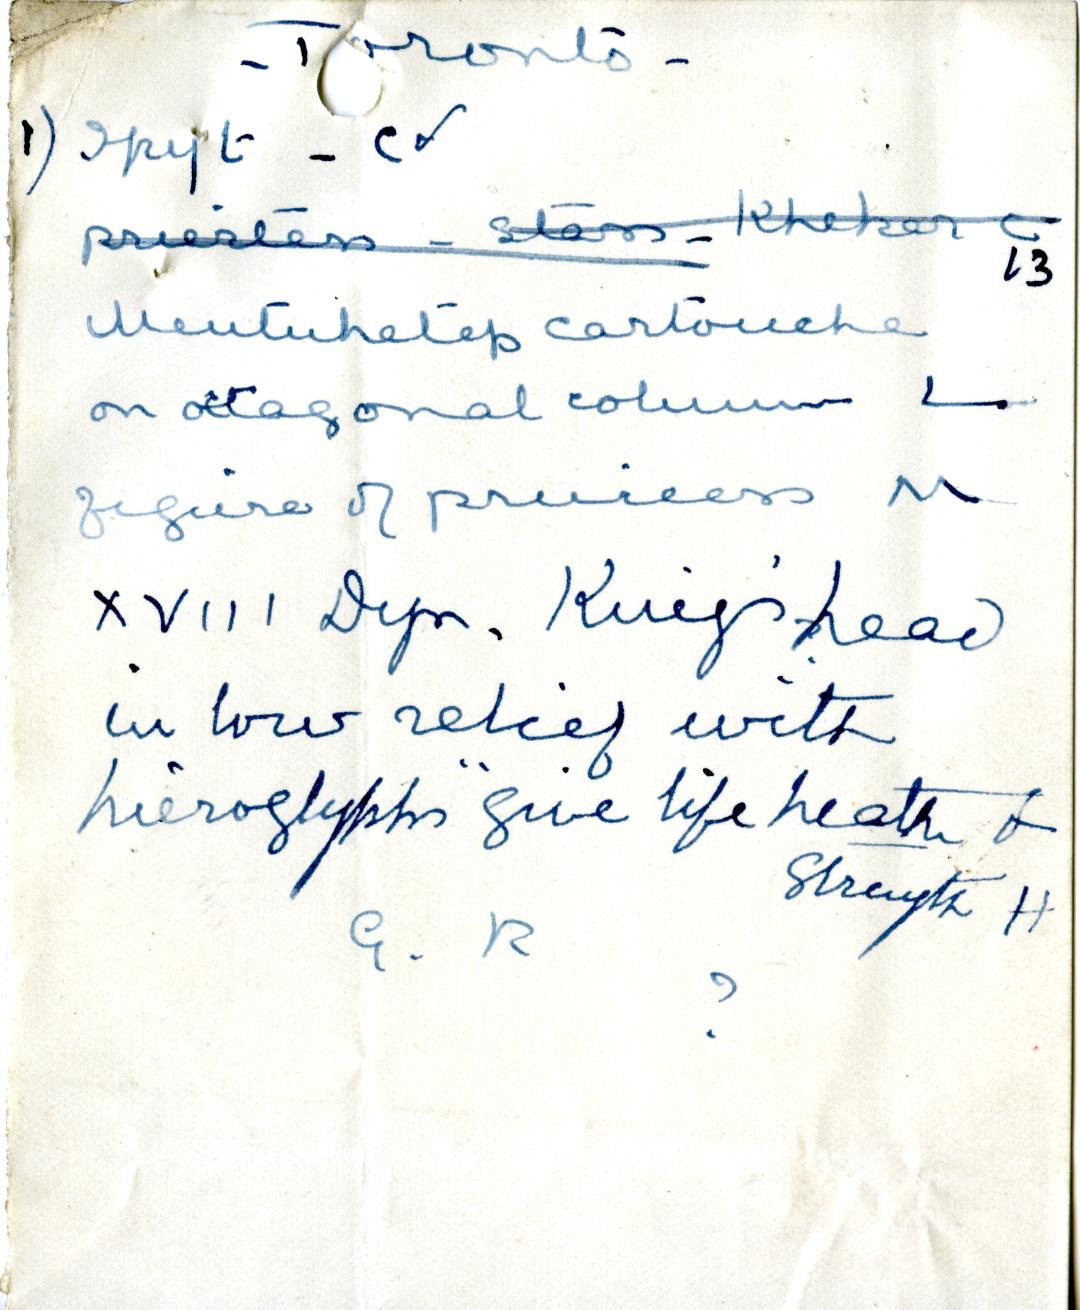 - Toronto -
1) Ipuyt - C✓
priestess - stess - Kheker C
13
Mentuhetep cartouche
on octagonal column L
figure of princess M
XVIII Dyn. King's head
in low relief with
hieroglyphs "give life heath &
Strength H
G. R
?